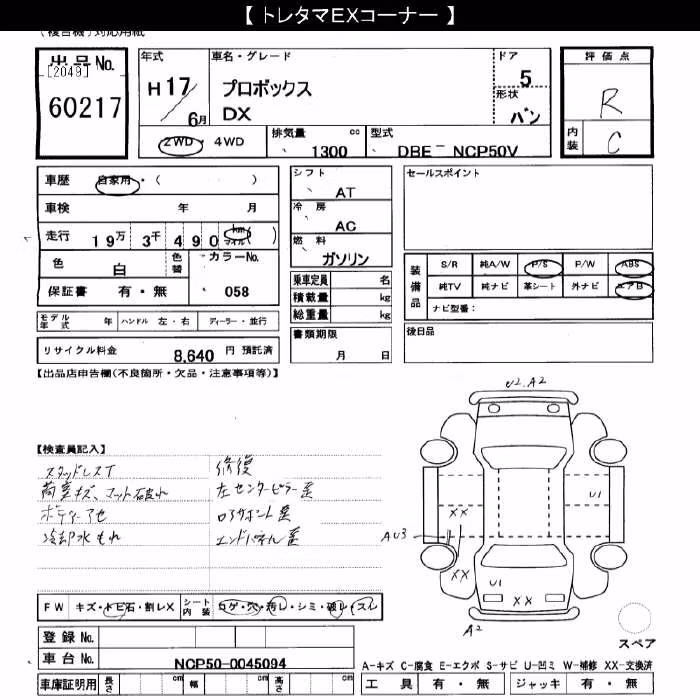 【 トレタマEXコーナー 】
(複合機) 対応用紙
出品No.
[2049]
60217
年式
H 17/6月
車名・グレード
プロボックス
DX
ドア
5
形状
バン
評価点
R
内装
C
2WD・4WD
排気量 cc
1300
型式
DBE- NCP50V
車歴 自家用・( )
車検 年 月
走行 19万 3千 490 km マイル ( )
色 白 色替 カラーNo.
保証書 有・無 058
モデル年式 年 ハンドル 左・右 ディーラー・並行
リサイクル料金 8,640 円 預託済
シフト
AT
冷房
AC
燃料
ガソリン
乗車定員 名
積載量 kg
総重量 kg
書類期限
月 日
セールスポイント
装備品
S/R 純A/W P/S P/W ABS
純TV 純ナビ 革シート 外ナビ エアB
ナビ型番：
後日品
【出品店申告欄(不良箇所・欠品・注意事項等)】
【検査員記入】
スタッドレスT
荷室キズ、マット破れ
ボディーアセ
冷却水もれ
修復
左センターピラー歪
ロアサポート歪
エンドパネル歪
U2.A2
U1
XX
AU3
XX
U1
XX
A2
スペア
FW キズ・トビ石・割レX シート内装 コゲ・穴・汚レ・シミ・破レ・スレ
登録 No.
車台 No. NCP50-0045094
車庫証明用 長さ cm 幅 cm 高さ cm
A-キズ C-腐食 E-エクボ S-サビ U-凹ミ W-補修 XX-交換済
工具 有・無 ジャッキ 有・無